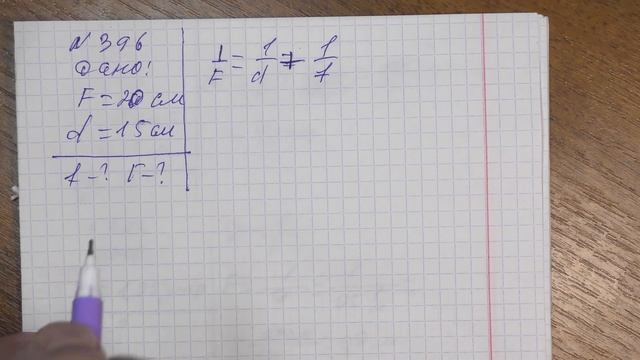 N 396
Дано:
F = 20 см
d = 15 см
f - ? Г - ?
1/F = 1/d + 1/f